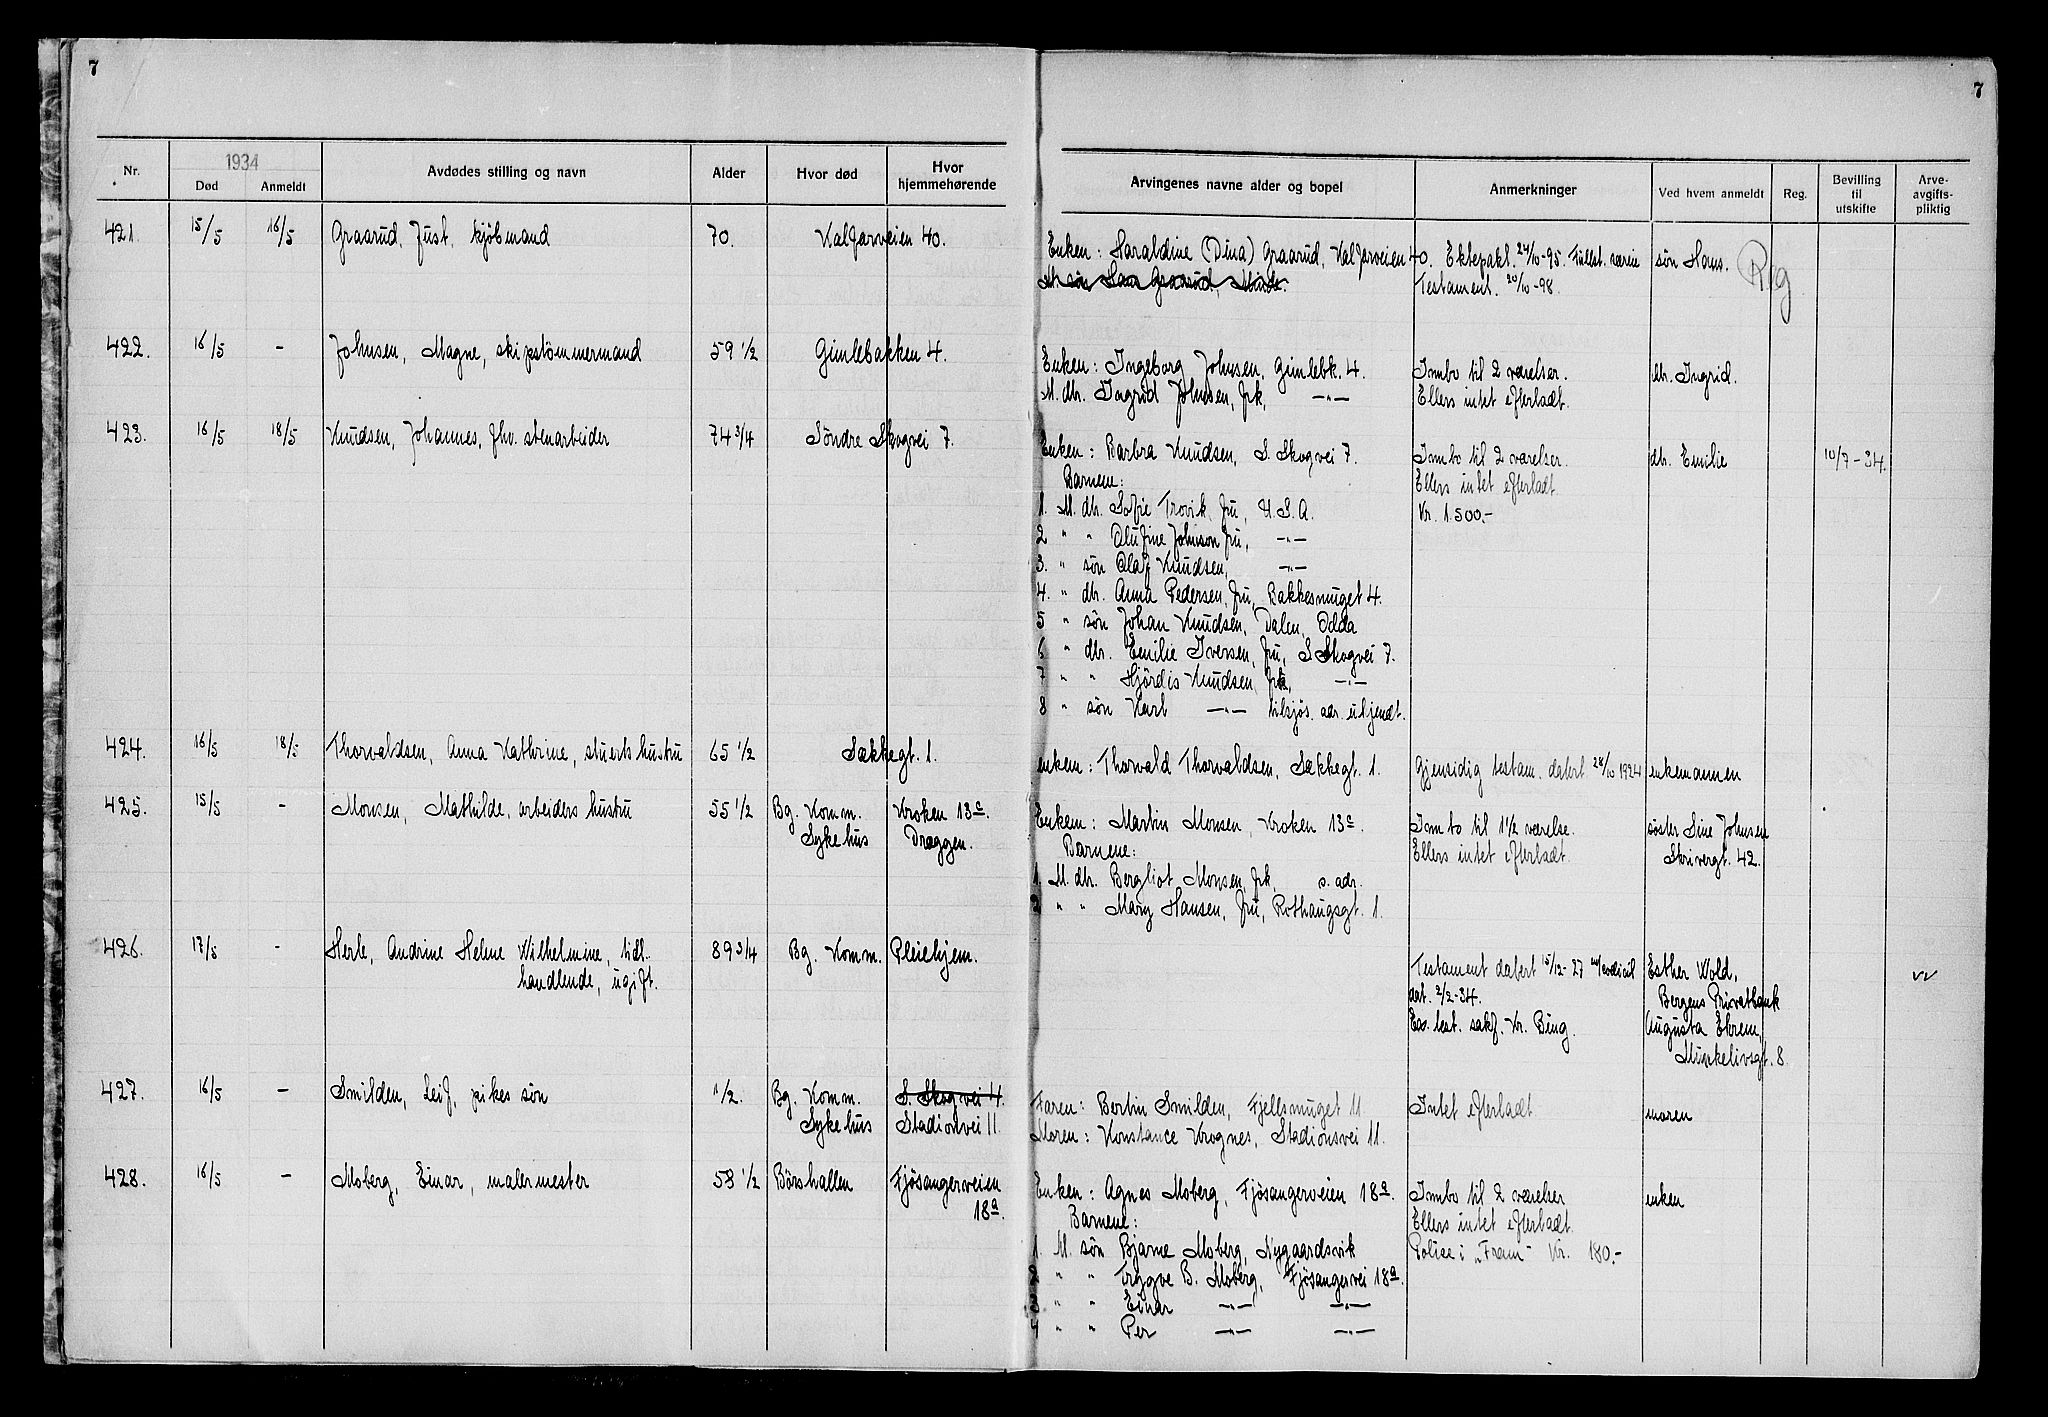 7
7
Nr.
1934
Død
Anmeldt
Avdødes stilling og navn
Alder
Hvor død
Hvor hjemmehørende
Arvingenes navne alder og bopel
Anmerkninger
Ved hvem anmeldt
Reg.
Bevilling til utskifte
Arve-avgifts-pliktig
421. 15/5 16/5 Graarud, Just, kjøbmand 70. Kalfarveien 40.
Enken: Haraldine (Dina) Graarud, Kalfarveien 40. Ektepakt. 24/10-95. Fullst. særeie søn Hans. Reg
M. søn Hans Graarud, Minde. Testament. 20/10-98.
422. 16/5 - Johnsen, Magne, skipstømmermand 59 1/2 Gimlebakken 4.
Enken: Ingeborg Johnsen, Gimlebk. 4. Innbo til 2 værelser. dtr. Ingrid.
M. dtr. Ingrid Johnsen, frk, -"- Ellers intet efterladt.
423. 16/5 18/5 Knudsen, Johannes, fhv. stenarbeider 74 3/4 Søndre Skogvei 7.
Enken: Barbra Knudsen, S. Skogvei 7. Innbo til 2 værelser. dtr. Emilie 10/7-34.
Barnene: Ellers intet efterladt
1. M. dtr. Sofie Trovik, fru, U.S.A. Kr. 1500.-
2 " " Olufine Johnson fru, -"-
3. " søn Olaf Knudsen, -"-
4. " dtr. Anna Pedersen, fru, Bakkesmuget 4.
5 " søn Johan Knudsen, Dalen, Odda
6 " dtr. Emilie Iversen, fru, S Skogvei 7.
7 " " Hjørdis Knudsen, frk, -"-
8 " søn Karl -"- tilsjøs. adr. ukjendt.
424. 16/5 18/5 Thorvaldsen, Anna Kathrine, stuerts hustru 65 1/2 Sækkegt. 1.
enken: Thorvald Thorvaldsen, Sækkegt. 1. Gjensidig testam. datert 28/10 1924 enkemannen
425. 15/5 - Monsen, Mathilde, arbeiders hustru 55 1/2 Bg. Komm. Kroken 13c.
Sykehus Dræggen.
Enkem: Martin Monsen, Kroken 13c. Innbo til 1 1/2 værelse. søster Sine Johnsen
Barnene: Ellers intet efterladt. Skivergt. 42.
1. M. dtr. Bergliot Monsen, frk, s. adr.
2 " " Mary Hansen, fru, Rothaugsgt. 1.
426. 17/5 - Herle, Andrine Helene Wilhelmine, tidl. 89 3/4 Bg. Komm. Pleiehjem.
handlende, ugift.
Testament datert 15/12-27 m/codicil Esther Wold, vv
dat. 2/2-34. Bergens Privatbank
Ex. test. sakf. Kr. Bing. Augusta Ekrem,
Munkelivsgt. 8
427. 16/5 - Smilden, Leif, pikes søn 1/2. Bg. Komm. S. Skogvei 4.
Sykehus Stadionvei 11.
Faren: Bertin Smilden, Fjellsmuget 11 Intet efterladt moren
Moren: Konstance Krognes, Stadionsvei 11.
428. 16/5 - Moberg, Einar, malermester 53 1/2 Børshallen Fjøsangerveien
18a.
Enken: Agnes Moberg, Fjøsangerveien 18a. Innbo til 2 værelser enken
Barnene: Ellers intet efterladt.
1. M. søn Bjarne Moberg, Nygaardsvik Police i "Fram" Kr. 180.-
2 " " Trygve B. Moberg, Fjøsangervei 18a.
3 " " Einar -"- -"-
4 " " Per -"- -"-